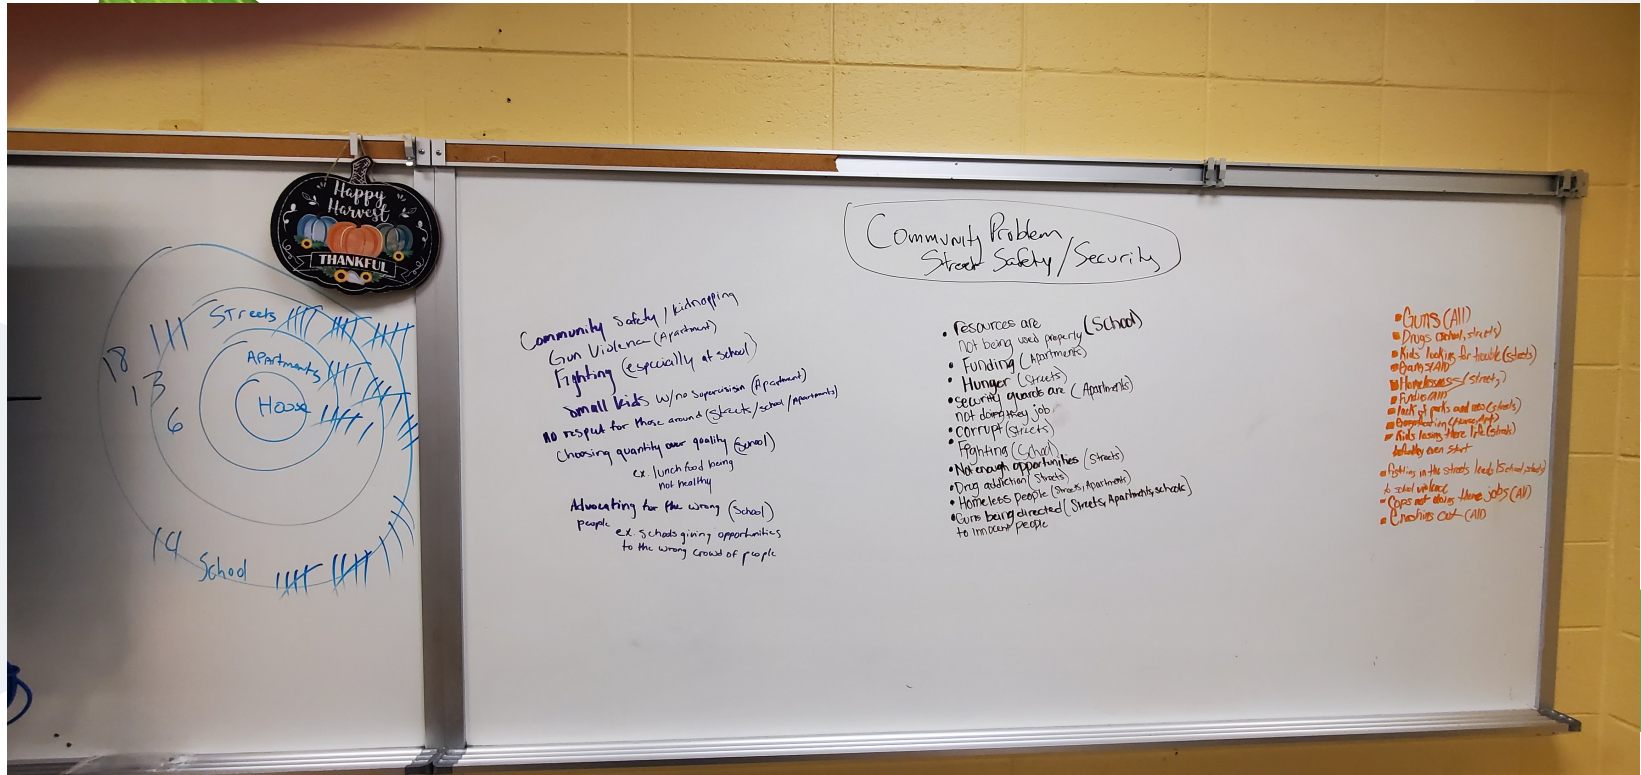 Happy
Harvest
THANKFUL
Streets
Apartments
House
18
13
6
14
School
Community Problem
Street Safety/Security
Community Safety / kidnapping
Gun Violence (Apartment)
Fighting (especially at school)
Small kids w/no supervision (Apartment)
no respect for those around (streets/school/Apartments)
Choosing quantity over quality (School)
ex. lunch food being
not healthy
Advocating for the wrong (School)
people
ex. schools giving opportunities
to the wrong crowd of people
• resources are (School)
not being used properly
• Funding (Apartments)
• Hunger (Streets)
• security guards are (Apartments)
not doing they job
• corrupt (streets)
• Fighting (School)
• Not enough opportunities (Streets)
• Drug addiction (Streets)
• Homeless people (Streets, Apartments)
• Guns being directed (Streets, Apartments, schools)
to innocent people
• Guns (All)
• Drugs (school, streets)
• Kids looking for trouble (streets)
• Gangs (All)
• Homelessness (streets)
• lack of parks and (streets)
• Kids losing there life (streets)
even start
• Fighting in the streets leads (School, streets)
to school violence
• Cops not doing there jobs (All)
• Crashing out (All)